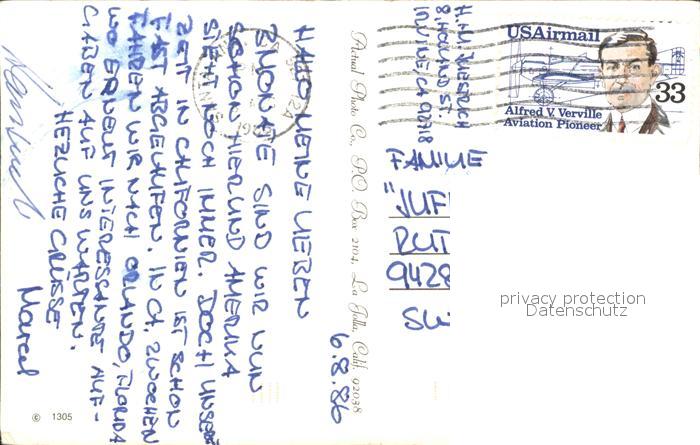 HALLO MEINE LIEBEN
2 MONATE SIND WIR NUN
SCHON HIER UND AMERIKA
STEHT NOCH IMMER. DOCH UNSERE
ZEIT IN CALIFORNIEN IST SCHON
FAST ABGELAUFEN. IN CA. 2 WOCHEN
FAHREN WIR NACH ORLANDO, FLORIDA
WO ERNEUT INTERESSANTE AUF-
GABEN AUF UNS WARTEN.
HERZLICHE GRÜSSE
Marcel
6.8.86
© 1305
Actual Photo Co., P.O. Box 2104, La Jolla, Calif. 92038
8 HOLLAND ST.
IRVINE/CA 92718
USAirmail
33
Alfred V. Verville
Aviation Pioneer
FAMILIE
"JUF
RÜT
9428
privacy protection
Datenschutz